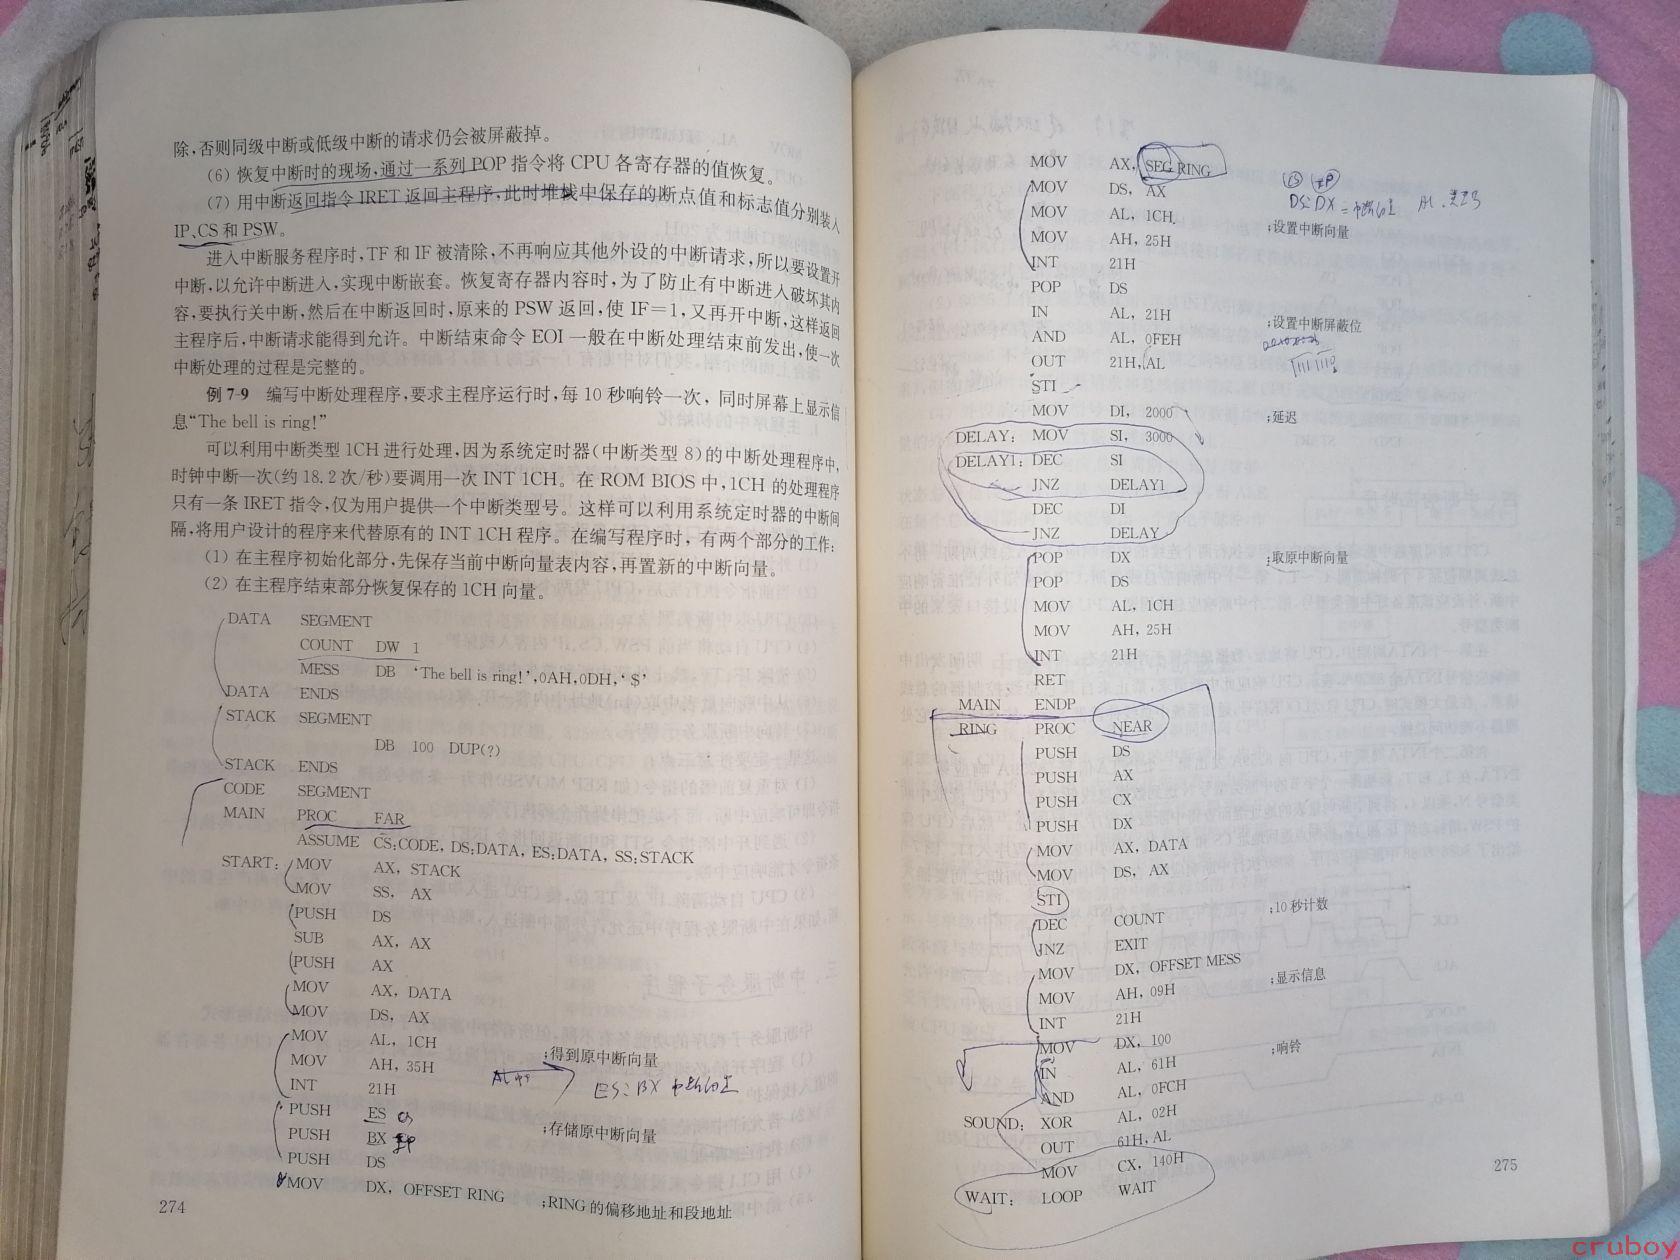 除,否则同级中断或低级中断的请求仍会被屏蔽掉。
(6) 恢复中断时的现场,通过一系列 POP 指令将 CPU 各寄存器的值恢复。
(7) 用中断返回指令 IRET 返回主程序,此时堆栈中保存的断点值和标志值分别装入
IP、CS 和 PSW。
进入中断服务程序时,TF 和 IF 被清除,不再响应其他外设的中断请求,所以要设置开
中断,以允许中断进入,实现中断嵌套。恢复寄存器内容时,为了防止有中断进入破坏其内
容,要执行关中断,然后在中断返回时,原来的 PSW 返回,使 IF=1,又再开中断,这样返回
主程序后,中断请求能得到允许。中断结束命令 EOI 一般在中断处理结束前发出,使一次
中断处理的过程是完整的。
例 7-9 编写中断处理程序,要求主程序运行时,每 10 秒响铃一次,同时屏幕上显示信
息“The bell is ring!”
可以利用中断类型 1CH 进行处理,因为系统定时器(中断类型 8)的中断处理程序中,
时钟中断一次(约 18.2 次/秒)要调用一次 INT 1CH。在 ROM BIOS 中,1CH 的处理程序
只有一条 IRET 指令,仅为用户提供一个中断类型号。这样可以利用系统定时器的中断间
隔,将用户设计的程序来代替原有的 INT 1CH 程序。在编写程序时,有两个部分的工作:
(1) 在主程序初始化部分,先保存当前中断向量表内容,再置新的中断向量。
(2) 在主程序结束部分恢复保存的 1CH 向量。
DATA SEGMENT
COUNT DW 1
MESS DB ‘The bell is ring!’,0AH,0DH,‘$’
DATA ENDS
STACK SEGMENT
DB 100 DUP(?)
STACK ENDS
CODE SEGMENT
MAIN PROC FAR
ASSUME CS:CODE, DS:DATA, ES:DATA, SS:STACK
START: MOV AX, STACK
MOV SS, AX
PUSH DS
SUB AX, AX
PUSH AX
MOV AX, DATA
MOV DS, AX
MOV AL, 1CH
MOV AH, 35H ;得到原中断向量
INT 21H
ES:BX
PUSH ES
PUSH BX ;存储原中断向量
PUSH DS
MOV DX, OFFSET RING ;RING 的偏移地址和段地址
274
MOV AX, SEG RING
MOV DS, AX
DS:DX
MOV AL, 1CH
MOV AH, 25H ;设置中断向量
INT 21H
POP DS
IN AL, 21H
AND AL, 0FEH ;设置中断屏蔽位
OUT 21H, AL
STI
MOV DI, 2000 ;延迟
DELAY: MOV SI, 3000
DELAY1: DEC SI
JNZ DELAY1
DEC DI
JNZ DELAY
POP DX ;取原中断向量
POP DS
MOV AL, 1CH
MOV AH, 25H
INT 21H
RET
MAIN ENDP
RING PROC NEAR
PUSH DS
PUSH AX
PUSH CX
PUSH DX
MOV AX, DATA
MOV DS, AX
STI
DEC COUNT ;10 秒计数
JNZ EXIT
MOV DX, OFFSET MESS
MOV AH, 09H ;显示信息
INT 21H
MOV DX, 100
IN AL, 61H ;响铃
AND AL, 0FCH
SOUND: XOR AL, 02H
OUT 61H, AL
MOV CX, 140H
WAIT: LOOP WAIT
275
cruboy